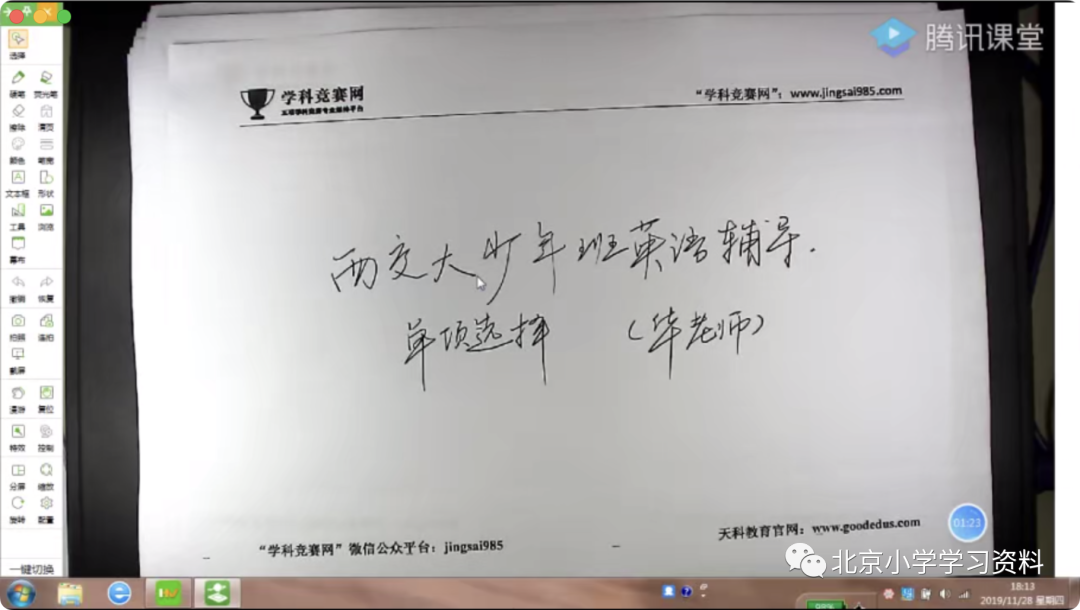 腾讯课堂
学科竞赛网
"学科竞赛网"：www.jingsai985.com
西交大少年班英语辅导.
单项选择 （华老师）
天科教育官网：www.goodedus.com
"学科竞赛网"微信公众平台：jingsai985
01:23
北京小学学习资料
选择
硬笔 荧光笔
擦除 清页
颜色 笔宽
文本框 形状
工具 浏览
幕布
撤销 恢复
拍照 连拍
截屏
漫游 复位
特效 控制
分屏 缩放
旋转 配置
一键切换
18:13
2019/11/28 星期四